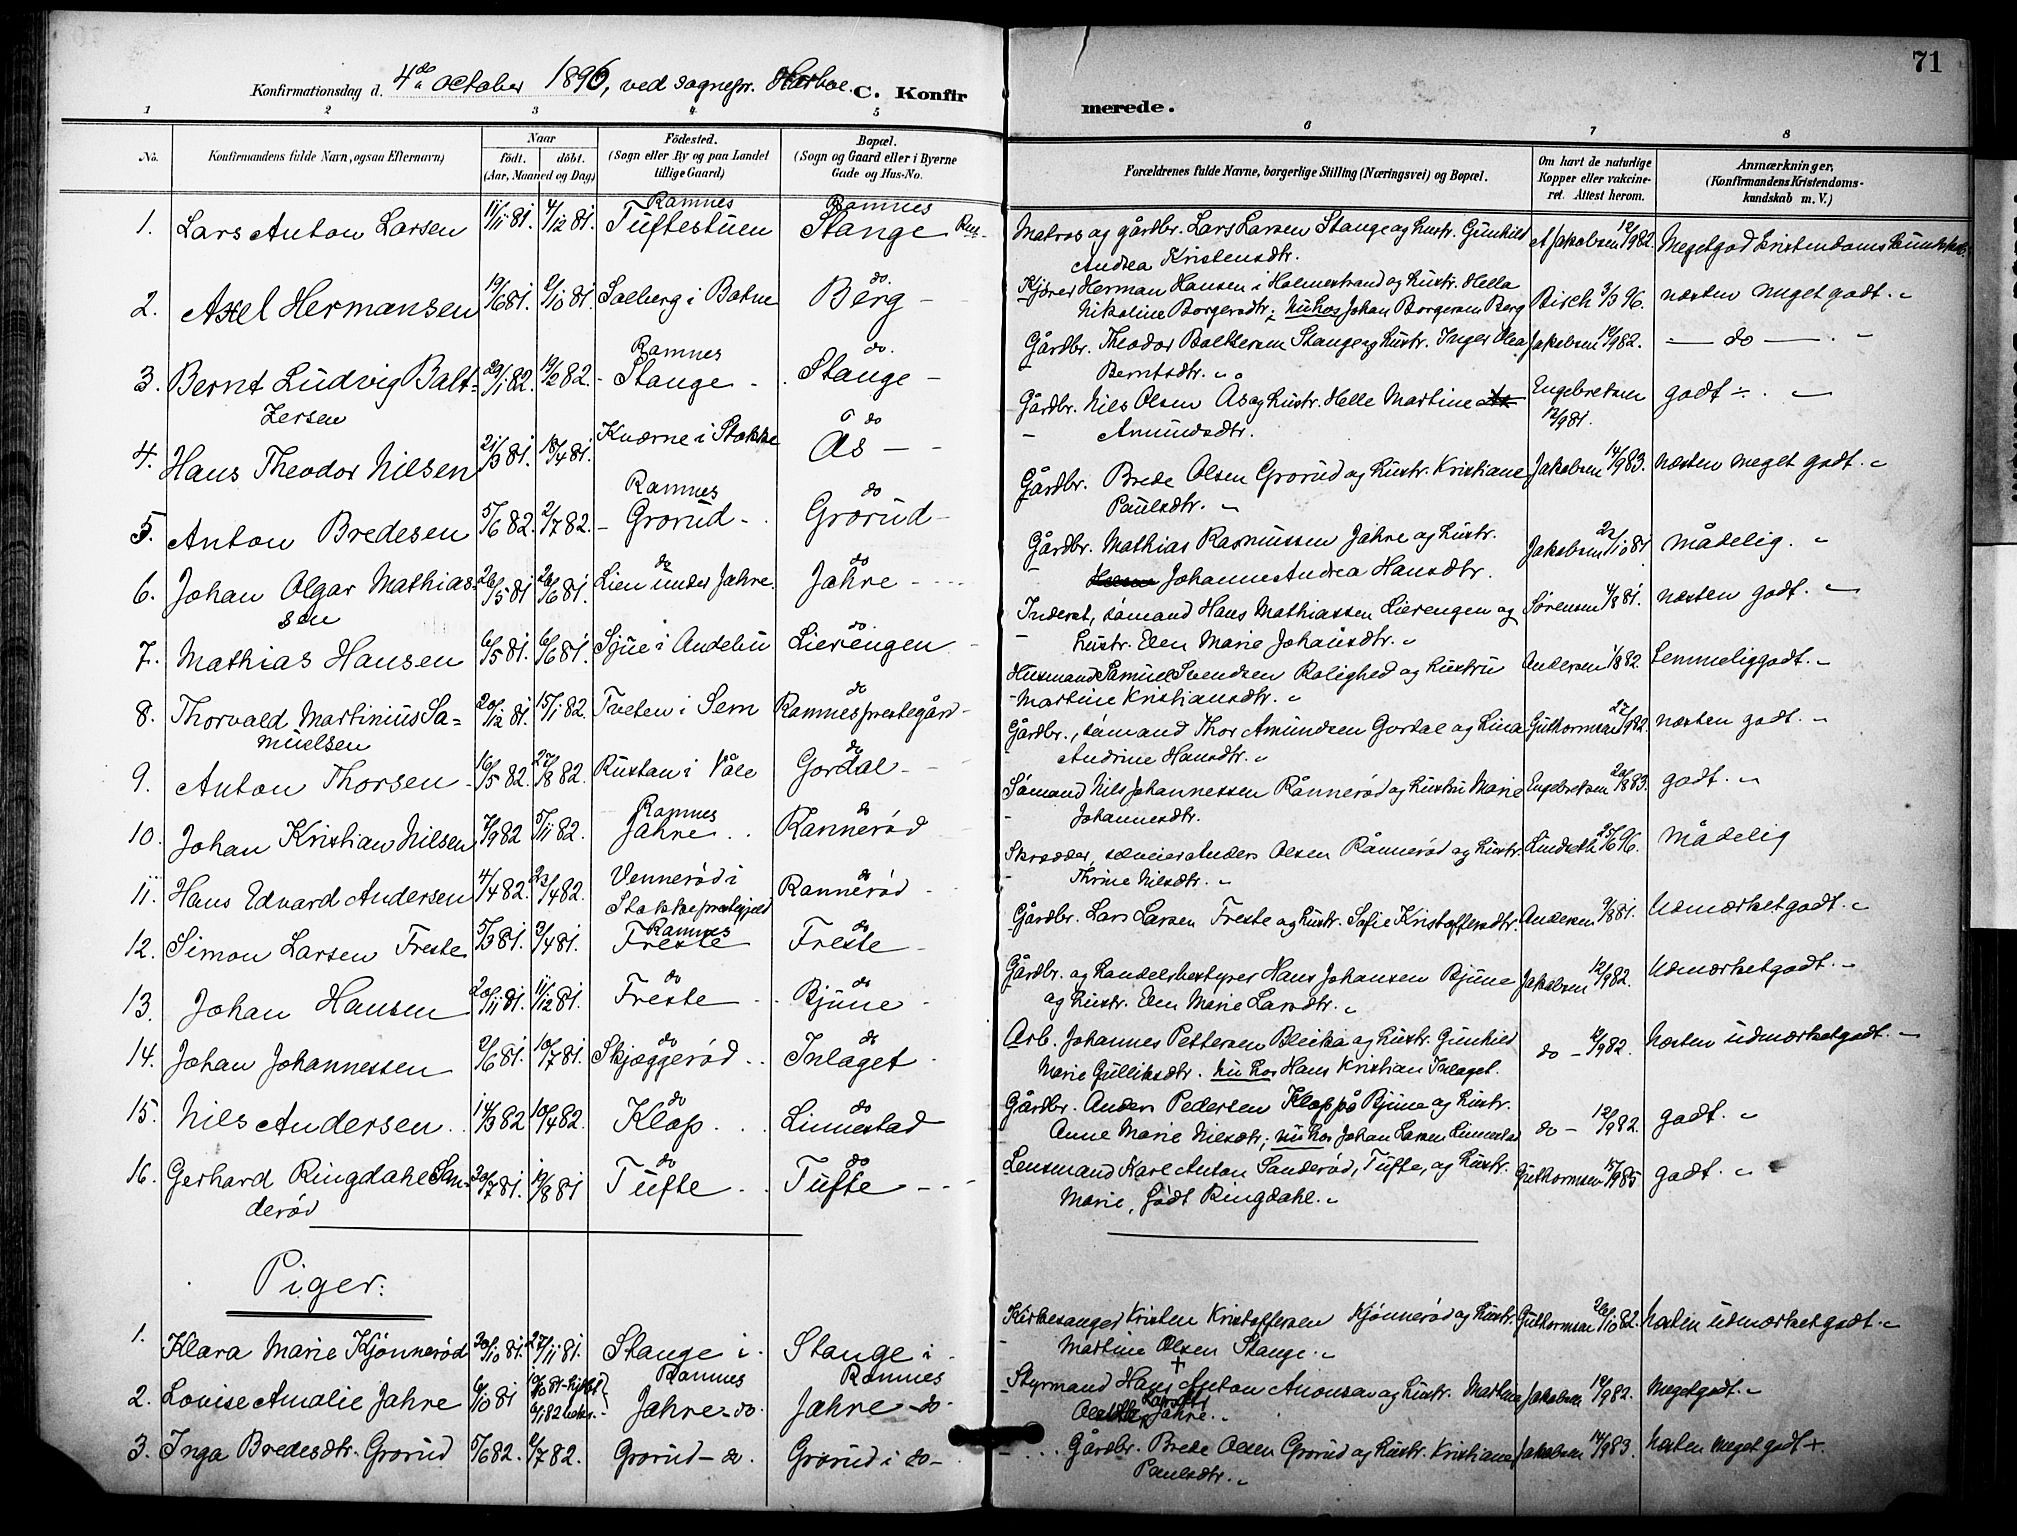 71
Konfirmationsdag d. 4de October 1896, ved sognepr. Harboe. C. Konfir
merede.
1 2 3 4 5
6 7 8
No. Konfirmandens fulde Navn, ogsaa Efternavn) Naar födt. döbt. (Aar, Maaned og Dag) Födested. (Sogn eller By og paa Landet tillige Gaard) Bopæl. (Sogn og Gaard eller i Byerne Gade og Hus-No.
Forældrenes fulde Navne, borgerlige Stilling (Næringsvei) og Bopæl. Om havt de naturlige Kopper eller vakcineret. Attest herom. Anmærkninger, (Konfirmandens Kristendomskundskab m. V.)
1. Lars Anton Larsen 11/11 81. 4/12 81. Ramnes Tuftestuen Ramnes Stange
Matros og gårdbr. Lars Larsen Stange og hustr. Gunhild Andrea Kristensdtr. Jakobsen 12/9 82. Meget god kristendoms kundskab.
2. Axel Hermansen 19/6 81. 2/10 81. Solberg i Botne do. Berg
Kjører Herman Hansen i Holmestrand og hustr. Hella Nikoline Borgersdtr; nu hos Johan Borgersen Berg Birch 3/3 96. næsten meget godt.
3. Bernt Ludvig Baltzersen 29/1 82. 12/2 82. Ramnes Stange do. Stange
Gårdbr. Theodor Baltzersen Stange og hustr. Inger Olea Berntsdtr. Jakobsen 12/9 82. do
4. Hans Theodor Nilsen 21/3 81. 18/4 81. Kværne i Stokke do Ås
Gårdbr. Nils Olsen Ås og hustr. Helle Martine Amundsdtr. Engebretsen 12/9 81. godt
5. Anton Bredesen 5/6 82. 2/7 82. Ramnes Grorud do Grorud
Gårdbr. Brede Olsen Grorud og hustr. Kristiane Paulsdtr. Jakobsen 14/9 83. næsten meget godt.
6. Johan Olgar Mathiassen 26/5 81 26/6 81. do Lien under Jahre. do Jahre
Gårdbr. Mathias Rasmussen Jahre og hustr. Johanne Andrea Hansdtr. Jakobsen 22/10 81 mådelig.
7. Mathias Hansen 6/5 81. 6/6 81. Sjue i Andebu do. Lierengen
Inderst, sømand Hans Mathiassen Lierengen og hustr. Elen Marie Johansdtr. Sørensen 4/8 81. næsten godt.
8. Thorvald Martinius Samuelsen 20/12 81. 15/1 82. Tveten i Sem do Ramnes prestegård
Husmand Samuel Svendsen Rolighed og hustru Martine Kristiansdtr. Andersen 1/8 82. Temmelig godt.
9. Anton Thorsen 16/5 82. 27/8 82. Rustan i Våle do Gordal
Gårdbr., sømand Thor Amundsen Gordal og Lina Andrine Hansdtr. Guthormsen 27/9 82. næsten godt.
10. Johan Kristian Nilsen 7/9 82 5/11 82. Ramnes Jahre do Rannerød
Sømand Nils Johannessen Rånnerød og hustru Marie Johannesdtr. Engebretsen 20/8 83. godt.
11. Hans Edvard Andersen 4/4 82. 23/4 82. Vennerød i Stokke prestegjeld do Rannerød
Skrædder, selveier Anders Olsen Rånnerød og hustr. Thrine Nilsdtr. Lindseth 25/6 96. Mådelig
12. Simon Larsen Freste 5/3 81. 3/4 81. Ramnes Freste do Freste
Gårdbr. Lars Larsen Freste og hustr. Sofie Kristoffersdtr. Andersen 9/8 81. Udmærket godt.
13. Johan Hansen 20/11 81. 11/12 81. do Freste do Bjune
Gårdbr. og handelsbestyrer Hans Johansen Bjune og hustr. Elen Marie Larsdtr. Jakobsen 12/9 82. Udmærket godt.
14. Johan Johannessen 2/6 81. 10/7 81. do Skjæggerød do Inlaget
Arb. Johannes Pettersen Bleika og hustr. Gunhild Marie Gulliksdtr. nu hos Hans Kristian Inlaget. do 12/9 82. Næsten udmærket godt.
15. Nils Andersen 14/3 82 10/4 82. do Klop do Linnestad
Gårdbr. Anders Pedersen Klop på Bjune og hustr. Anne Marie Nilsdtr; nu hos Johan Larsen Linnestad do 12/9 82. godt.
16. Gerhard Ringdahl Sanderød 20/7 81. 19/8 81 do Tufte do Tufte
Lensmand Karl Anton Sanderød, Tufte, og hustr. Marie, født Ringdahl. Guthormsen 15/9 85 godt.
Piger:
1. Klara Marie Kjønnerød 20/10 81. 27/11 81. Stange i Ramnes Stange i Ramnes
Kirkesanger Kristen Kristoffersen Kjønnerød og hustr. Martine Olsen Stange. Guthormsen 26/10 82. Næsten udmærket godt.
2. Lovise Amalie Jahre 6/10 81 10/10 81 6/1 82 Jahre do. Jahre do
Styrmand Hans Anton Aronsen og hustr. Mathea Larsdtr Jahre. Jakobsen 12/9 82. Meget godt.
3. Inga Bredesdtr. Grorud 5/6 82. 2/7 82. Grorud do. Grorud i do
Gårdbr. Brede Olsen Grorud og hustr. Kristiane Paulsdtr. Jakobsen 14/9 83. Næsten meget godt